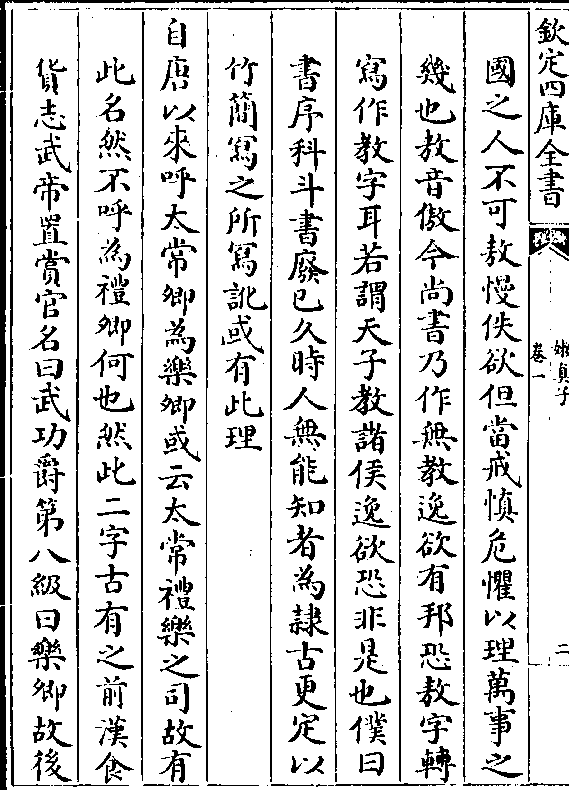 欽定四庫全書
嬾真子
卷一
二
國之人不可敖慢佚欲但當戒慎危懼以理萬事之
幾也敖音傲今尚書乃作無教逸欲有邦恐敖字轉
寫作教字耳若謂天子教諸侯逸欲恐非是也僕曰
書序科斗書廢已久時人無能知者為隸古更定以
竹簡寫之所寫訛或有此理
自唐以來呼太常卿為樂卿或云太常禮樂之司故有
此名然不呼為禮卿何也然此二字古有之前漢食
貨志武帝置賞官名曰武功爵第八級曰樂卿故後